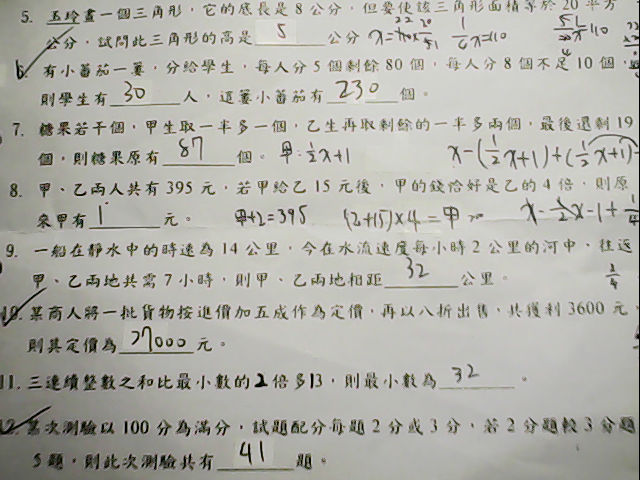 5. 玉玲畫一個三角形，它的底長是 8 公分，但要使該三角形面積等於 20 平方
公分，試問此三角形的高是 5 公分
6. 有小蕃茄一簍，分給學生，每人分 5 個剩餘 80 個，每人分 8 個不足 10 個，
則學生有 30 人，這簍小蕃茄有 230 個。
7. 糖果若干個，甲生取一半多一個，乙生再取剩餘的一半多兩個，最後還剩 19
個，則糖果原有 87 個。 甲：½x+1 x-(½x+1)+(½x+1)
8. 甲、乙兩人共有 395 元，若甲給乙 15 元後，甲的錢恰好是乙的 4 倍，則原
來甲有 元。 甲+2=395 (2+15)×4=甲 x-½x-1+
9. 一船在靜水中的時速為 14 公里，今在水流速度每小時 2 公里的河中，往返
甲、乙兩地共需 7 小時，則甲、乙兩地相距 32 公里。
10. 某商人將一批貨物按進價加五成作為定價，再以八折出售，共獲利 3600 元，
則其定價為 27000 元。
11. 三連續整數之和比最小數的 2 倍多13，則最小數為 32 。
12. 某次測驗以 100 分為滿分，試題配分每題 2 分或 3 分，若 2 分題較 3 分題
5 題，則此次測驗共有 41 題。